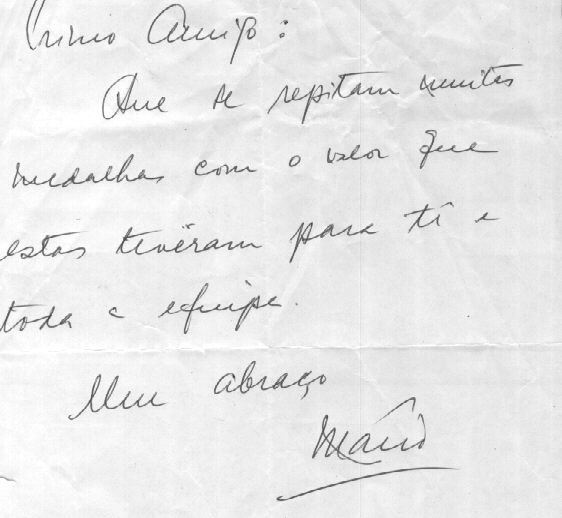 Primo Amigo:
Que se repitam muitas
medalhas com o valor que
estas tivéram para tí e
toda a equipe.
Um abraço
Mário